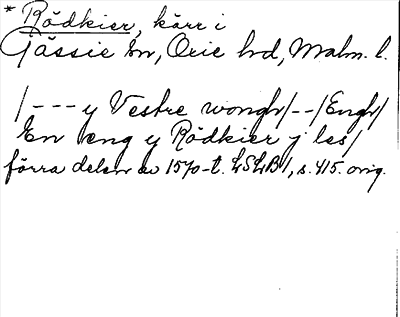 * Rödkier, kärr i
Gässie sn, Oxie hd, Malm. l.
/--- y Vestre wongh/--/Engh/
En eng y Rödkier j les/
förra delen av 1570-t. LSLB 1, s. 415. orig.